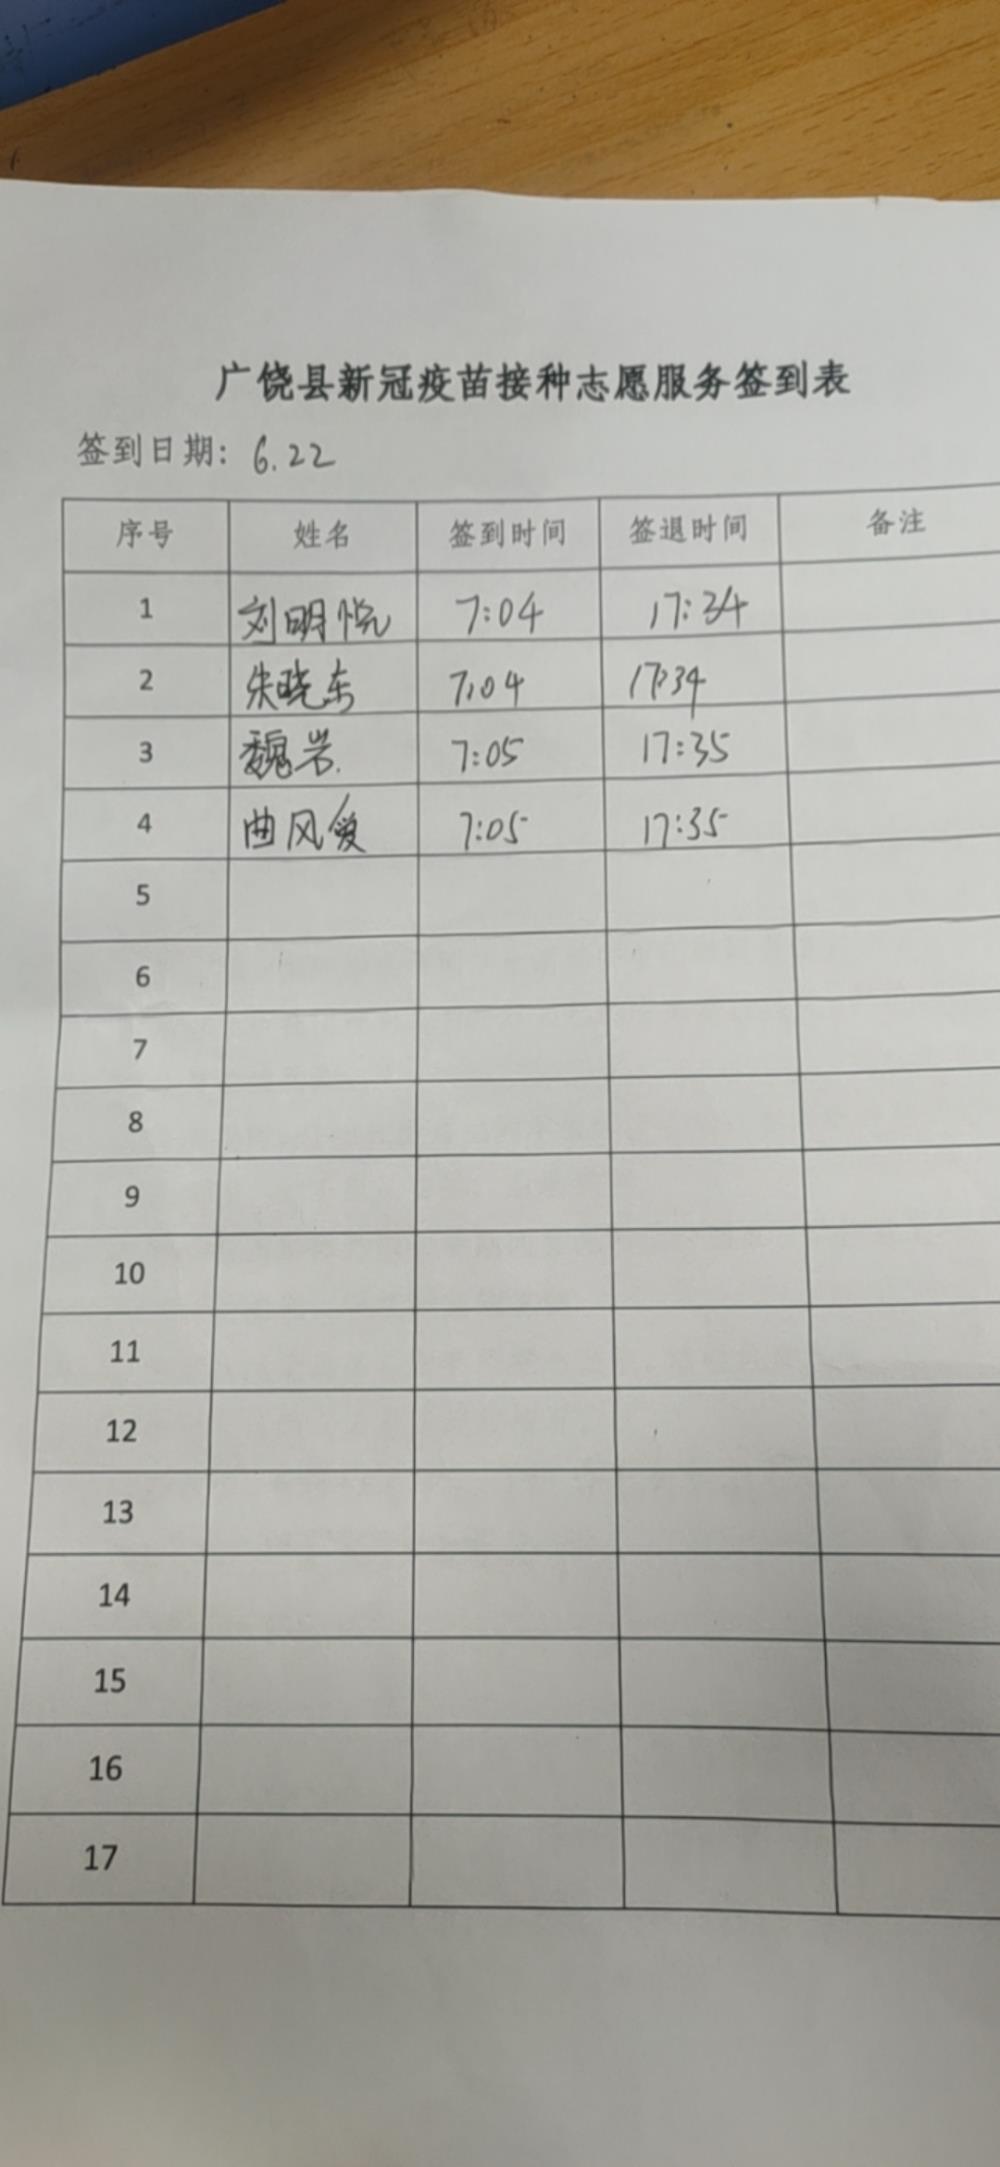 广饶县新冠疫苗接种志愿服务签到表
签到日期: 6.22
序号 姓名 签到时间 签退时间 备注
1 刘明悦 7:04 17:34
2 朱晓东 7:04 17:34
3 魏岩 7:05 17:35
4 曲风爱 7:05 17:35
5
6
7
8
9
10
11
12
13
14
15
16
17